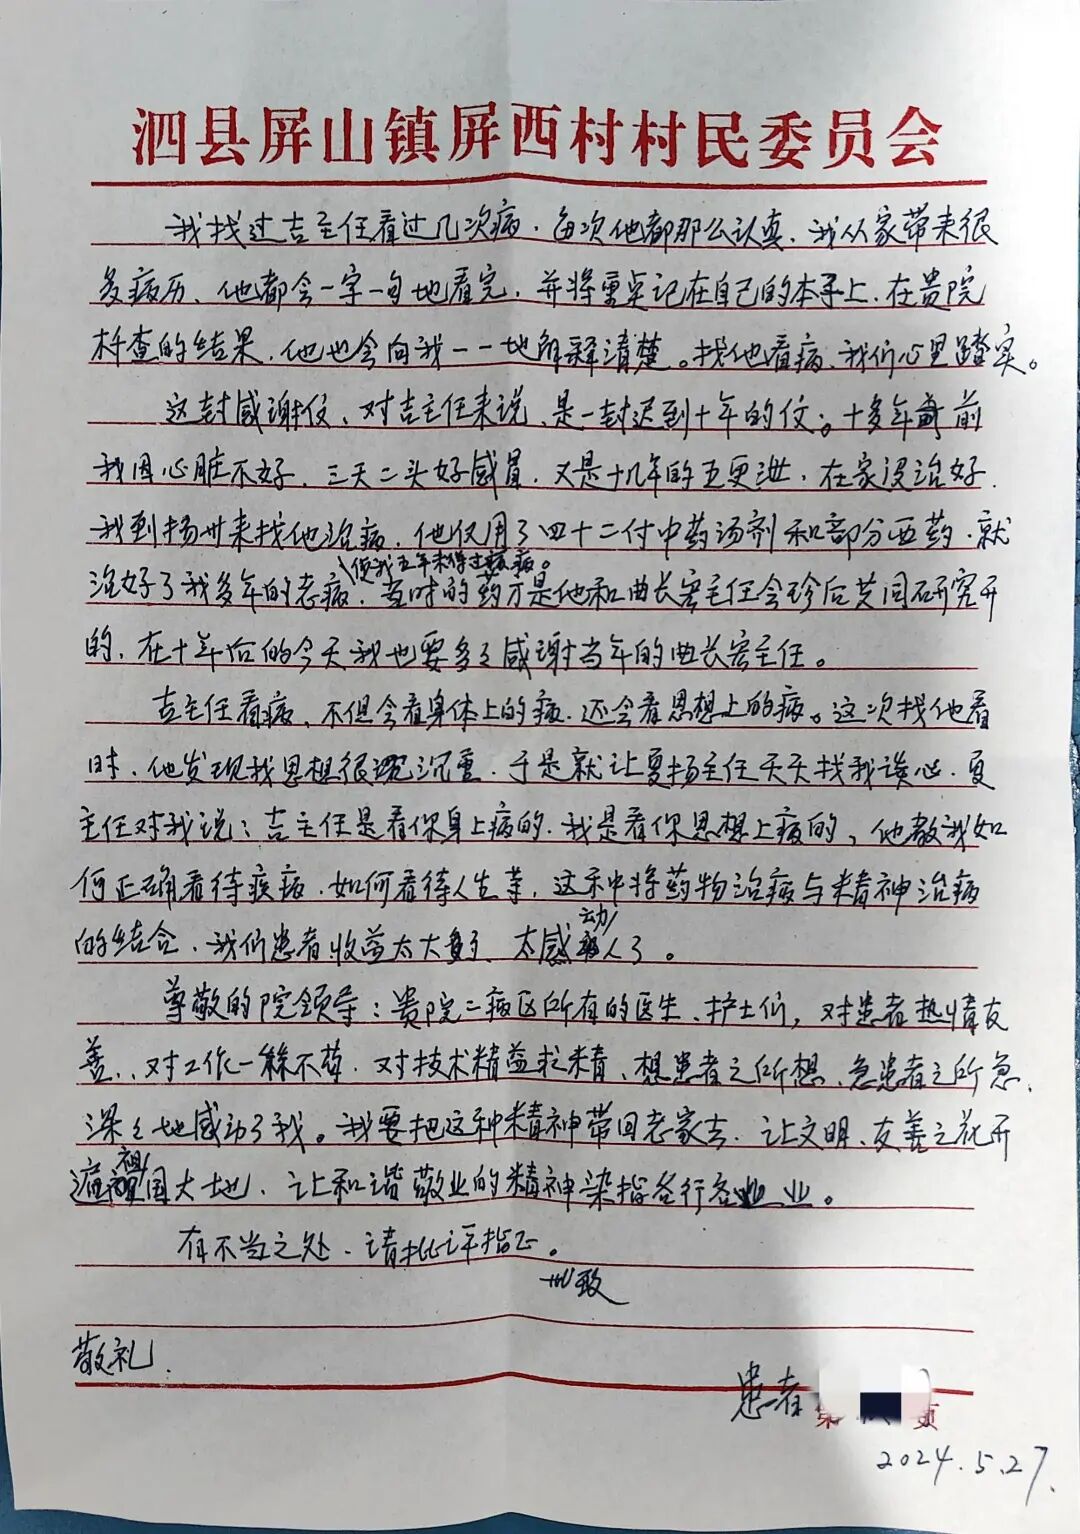 泗县屏山镇屏西村村民委员会
我找过吉主任看过几次病，每次他都那么认真，我从家带来很
多病历、他都会一字一句地看完，并将重点记在自己的本子上，在贵院
检查的结果，他也会向我一一地解释清楚。找他看病、我们心里踏实。
这封感谢信、对吉主任来说、是一封迟到十年的信。十多年前
我因心脏不好、三天二头好感冒，又是十几年的五更泄，在家没治好，
我到扬州来找他治病，他仅用了四十二付中药汤剂和部分西药，就
使我五年未得过疾病。
治好了我多年的老病，当时的药方是他和曲长宏主任会诊后共同研究开
的，在十年后的今天我也要多多感谢当年的曲长宏主任。
吉主任看病、不但会看身体上的病，还会看思想上的病。这次找他看
时，他发现我思想很沉重，于是就让夏扬主任天天找我谈心，夏
主任对我说：吉主任是看你身上病的，我是看你思想上病的，他教我如
何正确看待疾病，如何看待人生等，这种将药物治病与精神治病
的结合，我们患者收益太大了、太感动人了。
尊敬的院领导：贵院二病区所有的医生、护士们，对患者热情友
善，对工作一丝不苟，对技术精益求精、想患者之所想、急患者之所急，
深深地感动了我。我要把这种精神带回老家去，让文明、友善之花开
遍祖国大地，让和谐敬业的精神染指各行各业。
有不当之处，请批评指正。
此致
敬礼
患者
第 页
2024.5.27.